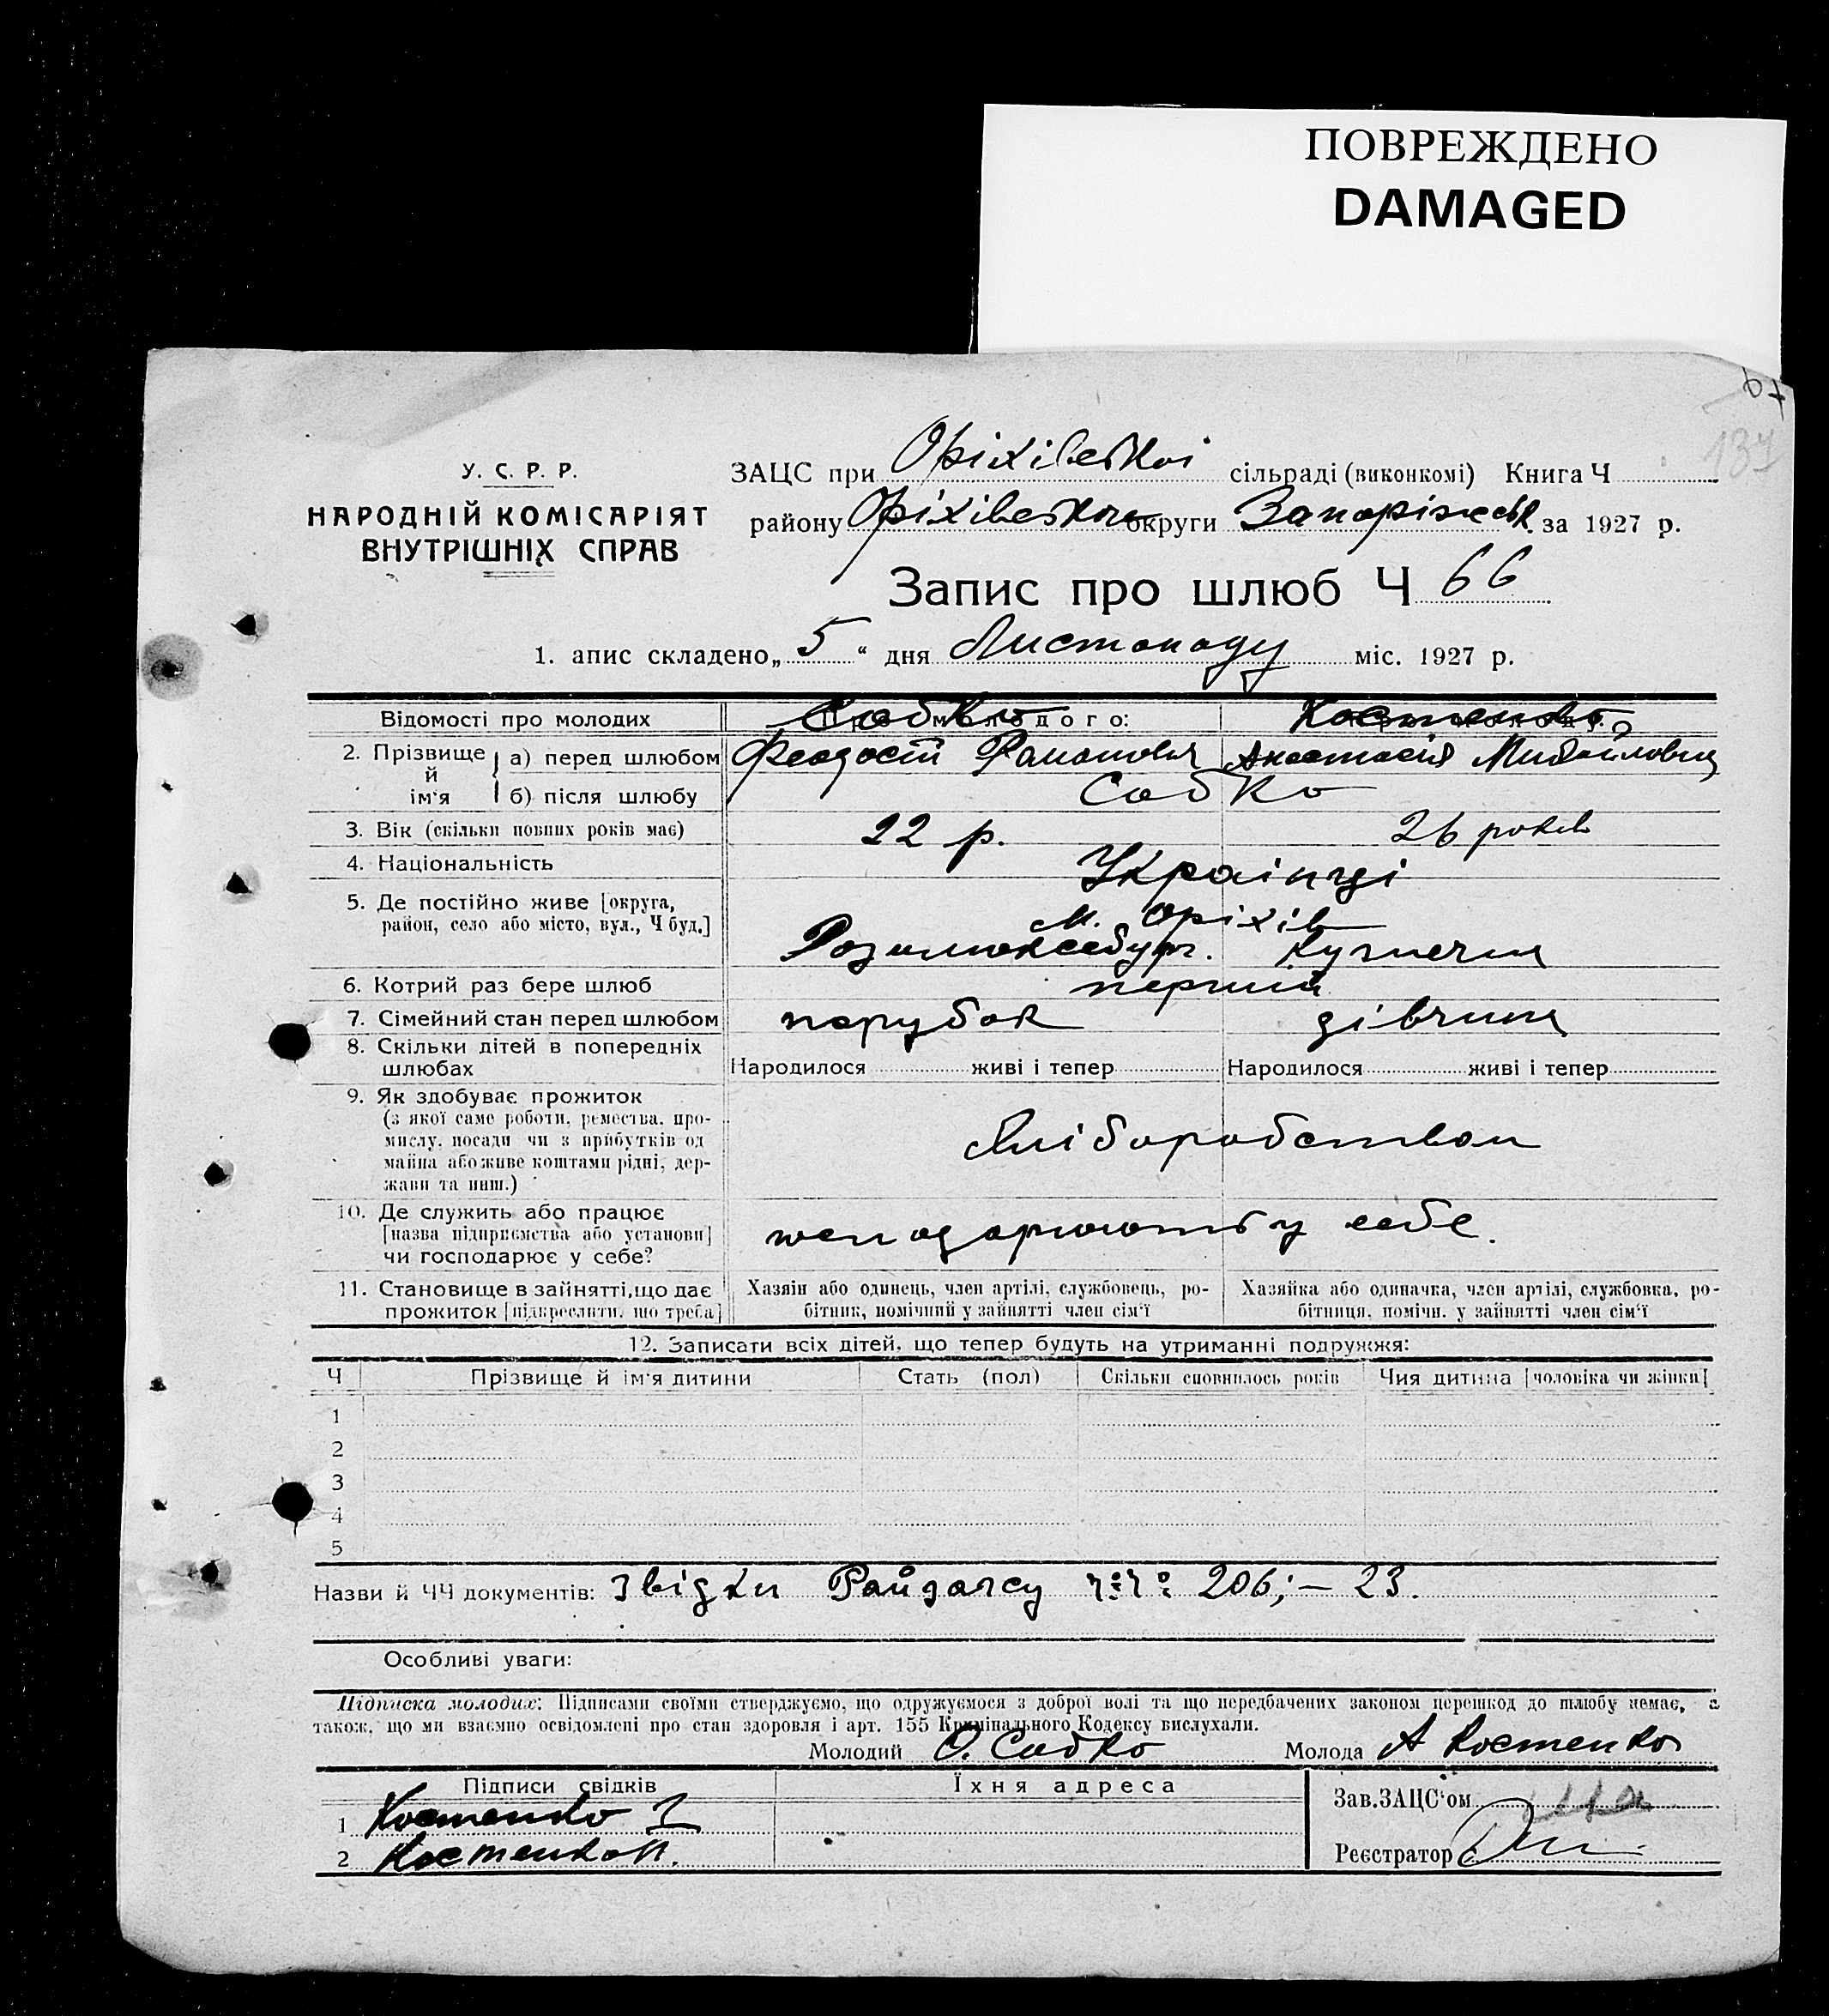 ПОВРЕЖДЕНО
DAMAGED
67
137
У. С. Р. Р.
НАРОДНІЙ КОМІСАРІЯТ
ВНУТРІШНІХ СПРАВ
ЗАЦС при Оріхівській сільраді (виконкомі) Книга Ч
району Оріхівського округи Запоріжськ. за 1927 р.
Запис про шлюб Ч 66
1. апис складено „ 5 “ дня Листопаду міс. 1927 р.
Відомості про молодих Собко Костенко
2. Прізвище й ім'я а) перед шлюбом Феодосій Романович Анастасія Михайловна
б) після шлюбу Собко
3. Вік (скільки повних років має) 22 р. 26 років
4. Національність Українці
5. Де постійно живе [округа, район, село або місто, вул., Ч буд.] м. Оріхів
6. Котрий раз бере шлюб перший
7. Сімейний стан перед шлюбом парубок дівчина
8. Скільки дітей в попередніх шлюбах Народилося живі і тепер Народилося живі і тепер
9. Як здобуває прожиток
(з якої саме роботи, ремества, про-
мислу, посади чи з прибутків од
майна або живе коштами рідні, дер-
жави та инш.)
Хліборобством
10. Де служить або працює
[назва підприємства або установи]
чи господарює у себе?
господарюють у себе.
11. Становище в зайнятті, що дає
прожиток [підкреслити, що треба]
Хазяїн або одинець, член артілі, службовець, ро-
бітник, помічний у зайнятті член сім'ї
Хазяйка або одиначка, член артілі, службовка, ро-
бітниця, помічн. у зайнятті член сім'ї
12. Записати всіх дітей, що тепер будуть на утриманні подружжя:
Ч Прізвище й ім'я дитини Стать (пол) Скільки сповнилось років Чия дитина [чоловіка чи жінки]
1
2
3
4
5
Назви й ЧЧ документів: Звідки 206; — 23.
Особливі уваги:
Підписка молодих: Підписами своїми стверджуємо, що одружуємося з доброї волі та що передбачених законом перешкод до шлюбу немає, а
також, що ми взаємно освідомлені про стан здоровля і арт. 155 Кримінального Кодексу вислухали.
Молодий Ф. Собко Молода А Костенко
Підписи свідків Їхня адреса Зав. ЗАЦС'ом
1 Костенко І
2 Костенко П. Реєстратор